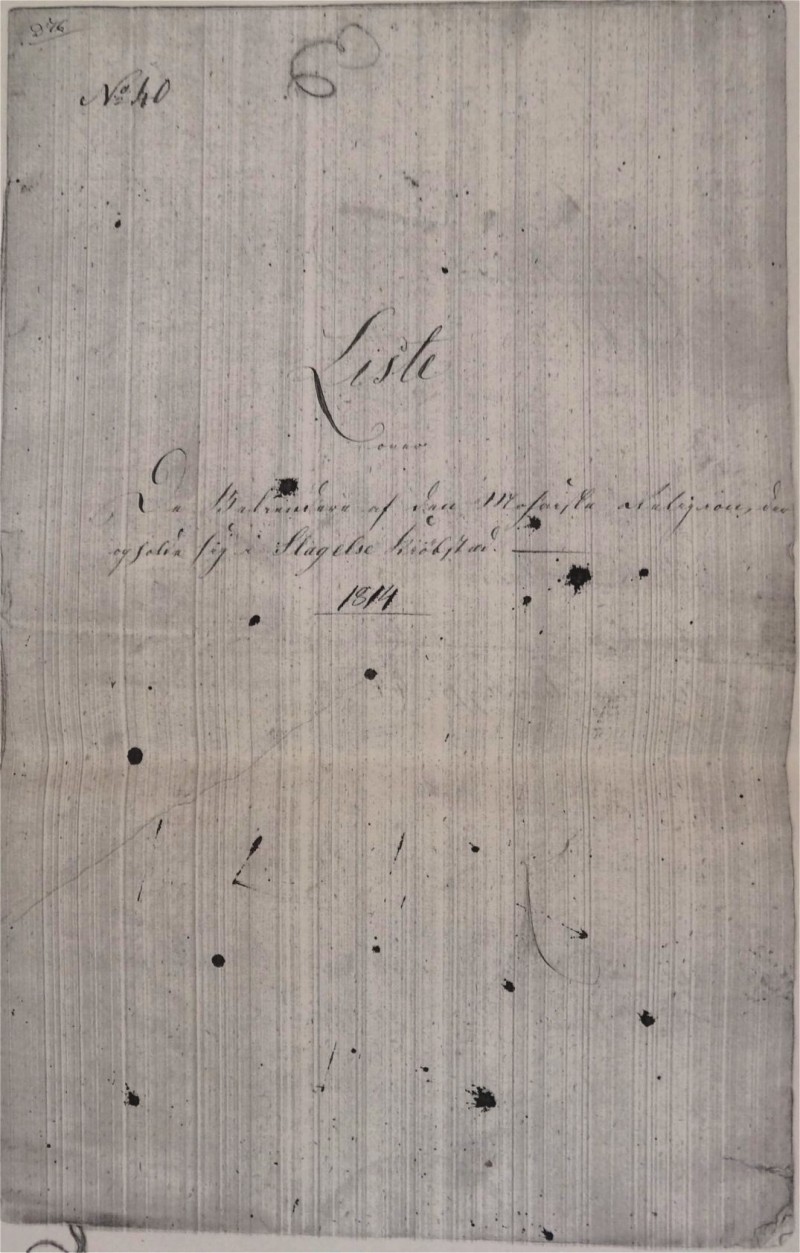 No 40
Liste
over
De Bekendere af den Mosaiske Religion, der
opholde sig i Slagelse Kiøbstæd.
1814